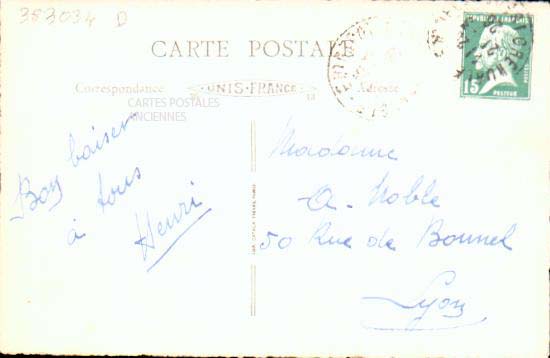 383034 D
CARTE POSTALE
Correspondance
UNIS-FRANCE
Adresse
CARTES POSTALES
ANCIENNES
Bon baiser
à tous
Henri
RÉPUBLIQUE FRANÇAISE
15
POSTES
PASTEUR
Madame
A. Noble
50 Rue de Bonnel
Lyon